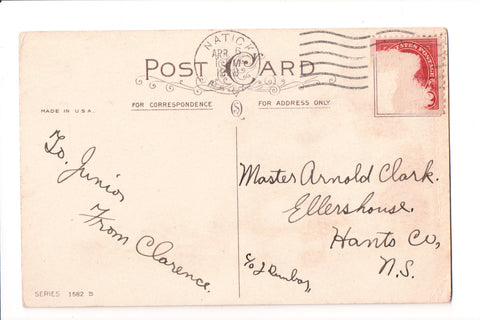 NATICK
APR 6
POST CARD
STATES POSTAGE
MADE IN U.S.A.
FOR CORRESPONDENCE
FOR ADDRESS ONLY
To Junior
From Clarence.
Master Arnold Clark.
Ellershouse.
Hants Co,
N.S.
c/o J Dunbar,
SERIES 1582 B